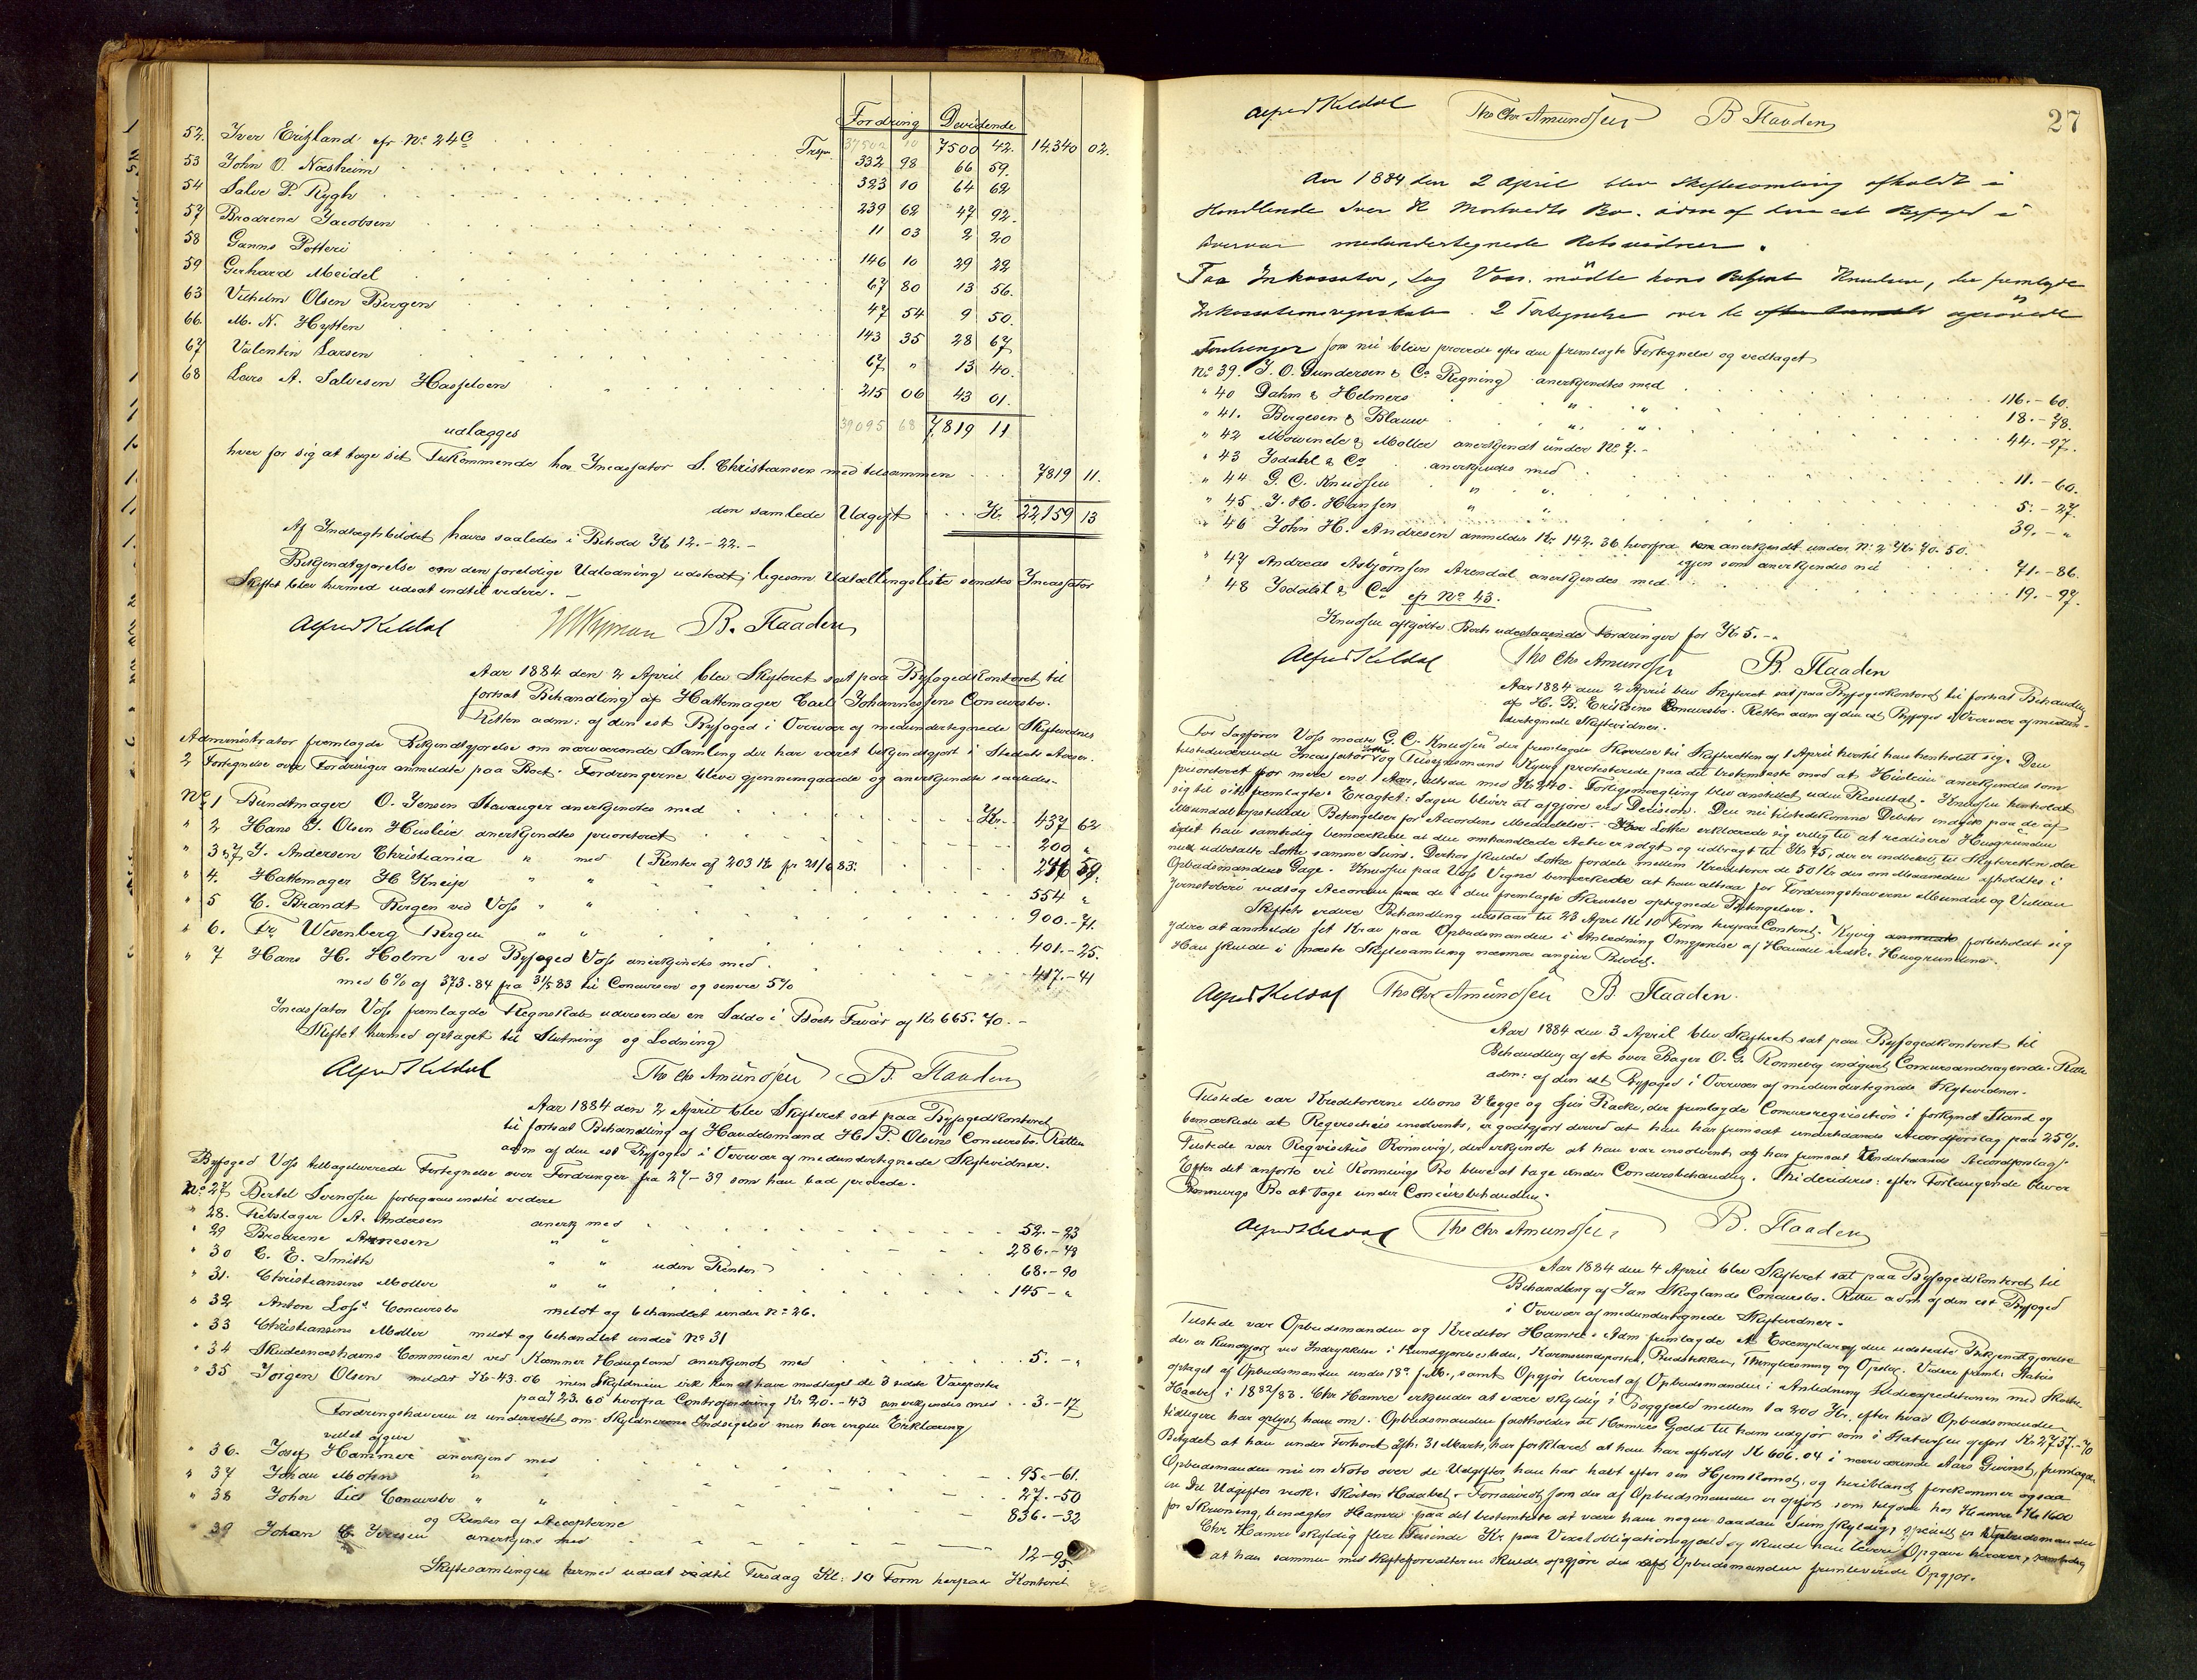 Fordring Devidende
Trspr. 37502 10 7500 42. 14,340 02.
52. Iver Erikland cfr No 24C 332 98 66 59.
53 John O. Næsheim 323 10 64 62
54 Salve P. Rygh 239 62 47 92.
57 Brødrene Jacobsen 11 03 2 20
58 Ganns Potteri 146 10 29 22
59 Gerhard Meidel 67 80 13 56.
63 Vilhelm Olsen Bergen 47 54 9 50.
66. M. N. Hytten 143 35 28 67
67 Valentin Larsen 67 " 13 40.
68 Lars A. Salvesen Hasseloen 215 06 43 01.
39095 68 7,819 11
udlægges
hver for sig at tage sit Tilkommende hos Incassator S. Christiansen med tilsammen 7819 11.
den samlede Udgift Kr. 22,159 13
Af Indtægtsbeløbet haves saaledes i Behold Kr 12.-22.-
Bekjendtgjørelse om den foreløbige Udlodning udstedt, ligesom Udtællingsliste sendtes Incassator
Skiftet blev hermed udsat indtil videre.-
Alfred Kildal B. Flaaden
Aar 1884 den 2 April blev Skifteret sat paa Byfogedkontoret til
fortsat Behandling af Hattemager Carl Johannessens Concursbo.
Retten adm: af den cst Byfoged i Overvær af medundertegnede Skiftevidner
Administrator fremlagde Bekjendtgjørelse om nærværende Samling der har været bekjendtgjort i Stedets Aviser.
2 Fortegnelse over Fordringer anmeldte paa Boet. Fordringerne bleve gjennemgaaede og anerkjendte saaledes.
No 1 Bundtmager O. Jensen Stavanger anerkjendtes med Kr. 437 62
" 2 Hans J. Olsen Husleie anerkjendtes prioriteret 200 "
" 3 & 7 J. Andersen Christiania " med (Renter af 203 Kr fr 21/6 83. 216 59.
" 4. Hattemager H Kneip " " 554 "
" 5 C. Brandt Bergen ved Voss " " 900.-71.
" 6. Fr. Wesenberg Bergen " " 401.-25.
" 7 Hans H. Holm ved Byfoged Voss anerkjendes med 417.-41
med 6% af 373.84 fra 31/5 83 til Concursen og senere 5%
Incassator Voss fremlagde Regnskab udvisende en Saldo i Boets Favør af Kr 665.70.-
Skiftet hermed optaget til Slutning og Lodning
Alfred Kildal Ths Chr Amundsen B. Flaaden
Aar 1884 den 2 April blev Skifteret sat paa Byfogedkontoret
til fortsat Behandling af Handelsmand H. P. Olsens Concursbo. Retten
adm af den cst Byfoged i Overvær af medundertegnede Skiftevidner.
Byfoged Voss tilbageleverede Fortegnelse over Fordringer fra 27-39 som han bad prøvede.
No 27 Bertel Svendsen forbigaaes indtil videre
" 28. Rebslager A. Andersen anerkj med 52.-23
" 29 Brødrene Arnesen " " 286.-48
" 30 C. E. Smith " " uden Renter 68.-90
" 31. Christiansens Møller " " 145-"
" 32 Anton Loss's Concursbo meldt og behandlet under No 26.
" 33 Christiansens Møller meldt og behandlet under No 31
" 34 Skudesneshavns Commune ved Kæmner Haugland anerkjendt med 5.-"
" 35 Jørgen Olsen meldet Kr 43.06 men Skyldneren vil kun at have modtaget de 3 sidste Vareposter
paa 23.60 hvorfra Contrafordring Kr 20.-43 anerkjendes med 3.-17
Fordringshaveren er underrettet om Skyldnerens Indsigelse men har ingen Erklæring
villet afgive
" 36. Josef Hammer anerkjend med 95.-61.
" 37 Johan Mohn " " 27.-50
" 38 John Lies Concursbo " " 836.-32
og Renter af Accepterne
39 Johan C. Iversen anerkjend med 12-95
Skiftesamlingen hermed udsat indtil Tirsdag Kl: 10 Form herpaa Kontoret
27
Alfred Kildal Ths Chr Amundsen B Flaaden
Aar 1884 den 2 April blev Skiftesamling afholdt i
Handlende Iver K Mortvedts Bo. adm af den cst Byfoged i
Overvær medundertegnede Retsvidner.
For Inkassator, Sag Voss. mødte hans Knudsen, der fremlagde
Inkassationsregnskab. 2 Fortegnelse over de
Fordringer som nu bleve prøvede efter den fremlagte Fortegnelse og vedtaget
No 39. J. O. Gundersen & Co Regning anerkjendtes med 116.-60.
" 40 Dahm & Helmers " " 18.-78.
" 41. Børgesen & Blauw " " 44.-97.
" 42 Mowinckel & Møller anerkjendt under No 7.-
" 43 Isdahl & Co anerkjendes med 11.-60.
" 44 G. C. Knudsen " " 5.-27.
" 45 J. H. Hansen " " 39.-"
" 46 John H. Andresen anmelder Kr 142.36 hvorfra anerkjendt under No 2 Kr 70.50.
igjen som anerkjendes nu 71.-86.
" 47 Andreas Asbjørnsen Arendal anerkjendes med 19.-97.
" 48 Isdahl & Co cfr No 43.
Knudsen afkjøbte Boets udestaaende Fordringer for Kr 5.-"
Alfred Kildal Ths Chr Amundsen B. Flaaden
Aar 1884 den 2 April blev Skifteret sat paa Byfogedkontoret til fortsat Behandling
af H. B. Eriksens Concursbo. Retten adm af den cst Byfoged i Overvær af medun-
dertegnede Skiftevidner.
For Sagfører Voss mødte G. C. Knudsen der fremlagde Skrivelse til Skifteretten af 1 April hvortil han henholdt sig. Den
tilstedeværende Incassator Lothe og Tillidsmand Kyvig protesterede paa det bestemteste mod at Huslein anerkjendes som
prioriteret for mere end 1 Aar, altsaa med Kr 240.- Forligsmægling blev anstillet uden Resultat. Knudsen henholdt
sig til sit fremlagte. Eragtet: Sagen bliver at afgjøre ved Decision. Den nu tilstedekomne Debitor indgik paa de af
Mundal opstillede Betingelser for Accordens Meddelelse.- Lothe erklærede sig villig til at realisere Husgrunden
idet han samtidig bemærkede at den omhandlede Actie er solgt og udbragt til Kr 75, der er indbetalt til Skifteretten der
nu udbetalte Lothe samme Sum. Derhos skulde Lothe fordele mellem Kreditorer de 50 Kr der om Maaneden afholdtes i
Opbudsmandens Gage. Knudsen paa Voss Vegne bemærkede at han altsaa for Fordringshaverne Mundal og Vulcan
Jernstøberi vedtog Accorden paa de i den fremlagte Skrivelse optegnede Betingelser.
Skiftets videre Behandling udstaar til 23 April Kl 10 Form herpaa Contoret. Kyvig forbeholdt sig
ydere at anmelde sit Krav paa Opbudsmanden i Anledning Omgjørelse af Handel vedk. Husgrundene.
Han skulde i næste Skiftesamling nærmere angive Beløbet.
Alfred Kildal Ths Chr Amundsen B. Flaaden.
Aar 1884 den 3 April blev Skifteret sat paa Byfogedkontoret til
Behandling af et over Bager O. G. Rønnevig indgivet Concursandragende. Retten
adm: af den cst Byfoged i Overvær af medundertegnede Skiftevidner.
Tilstede var Kreditorerne Mons Hegge og Racke, der fremlagde Concursreqvisition i forkyndt Stand og
bemærkede at Reqvisitus insolvents, er godtgjort derved at han har fremsat underhaands Accordforslag paa 25%.
Tilstede var Reqvisitus Rønnevig, der erkjendte at han var insolvent og har fremsat Underhaands Accordforslag.
Efter det anførte vil Rønnevigs Bo blive at tage under Concursbehandling. Thi decideres: efter Forlangende bliver
Rønnevigs Bo at tage under Concursbehandling.
Alfred Kildal Ths Chr Amundsen B. Flaaden
Aar 1884 den 4 April blev Skifteret sat paa Byfogedkontoret til
Behandling af Jan Skoglands Concursbo. Retten adm. af den cst Byfoged
i Overvær af medundertegnede Skiftevidner.
Tilstede var Opbudsmanden og Kreditor Hamre. Adm fremlagde et Exemplar af den udstedte Bekjendtgjørelse
der er kundgjort ved Indrykkelse i Kundgjørelsestid., Karmsundsposten, Budstikken, Thinglæsning og Opslag. Videre freml. Status
optaget af Opbudsmanden under 18de f. M., samt Opgjør leveret af Opbudsmanden i Anledning Sildeexpeditionen med Skøiten
Haabet i 1882/83. Chr Hamre erkjender at være skyldig i Boggjæld mellem 1 a 200 Kr, efter hvad Opbudsmanden
tidligere har oplyst ham om. Opbudsmanden fastholder at Hamres Gjæld til ham udgjør som i Statussen opført Kr 2737.-70
Betydet at han under Forhøret afh. 31 Marts, har forklaret at han har afholdt Kr 606.04 i nærværende Aars Gevinst, fremlagde
Opbudsmanden nu en Nota over de Udgifter han har havt efter sin Hjemkomst, og heriblandt forekommer ogsaa
en Del Udgifter vedk. Skøiten Haabet. Forsaavidt som der af Opbudsmanden er opført som tilgode hos Hamre Kr 1600
for Skruning, benægter Hamre paa det bestemteste at være ham nogen saadan Sum skyldig, Opbudsmanden
Chr Hamre skyldig flere Tusinde Kr paa Vexelobligationsgjæld og skulde han levere Opgave herover, samtidig
at han sammen med Skifteforvalteren skulde opgjøre det af Opbudsmanden fremleverede Opgjør.